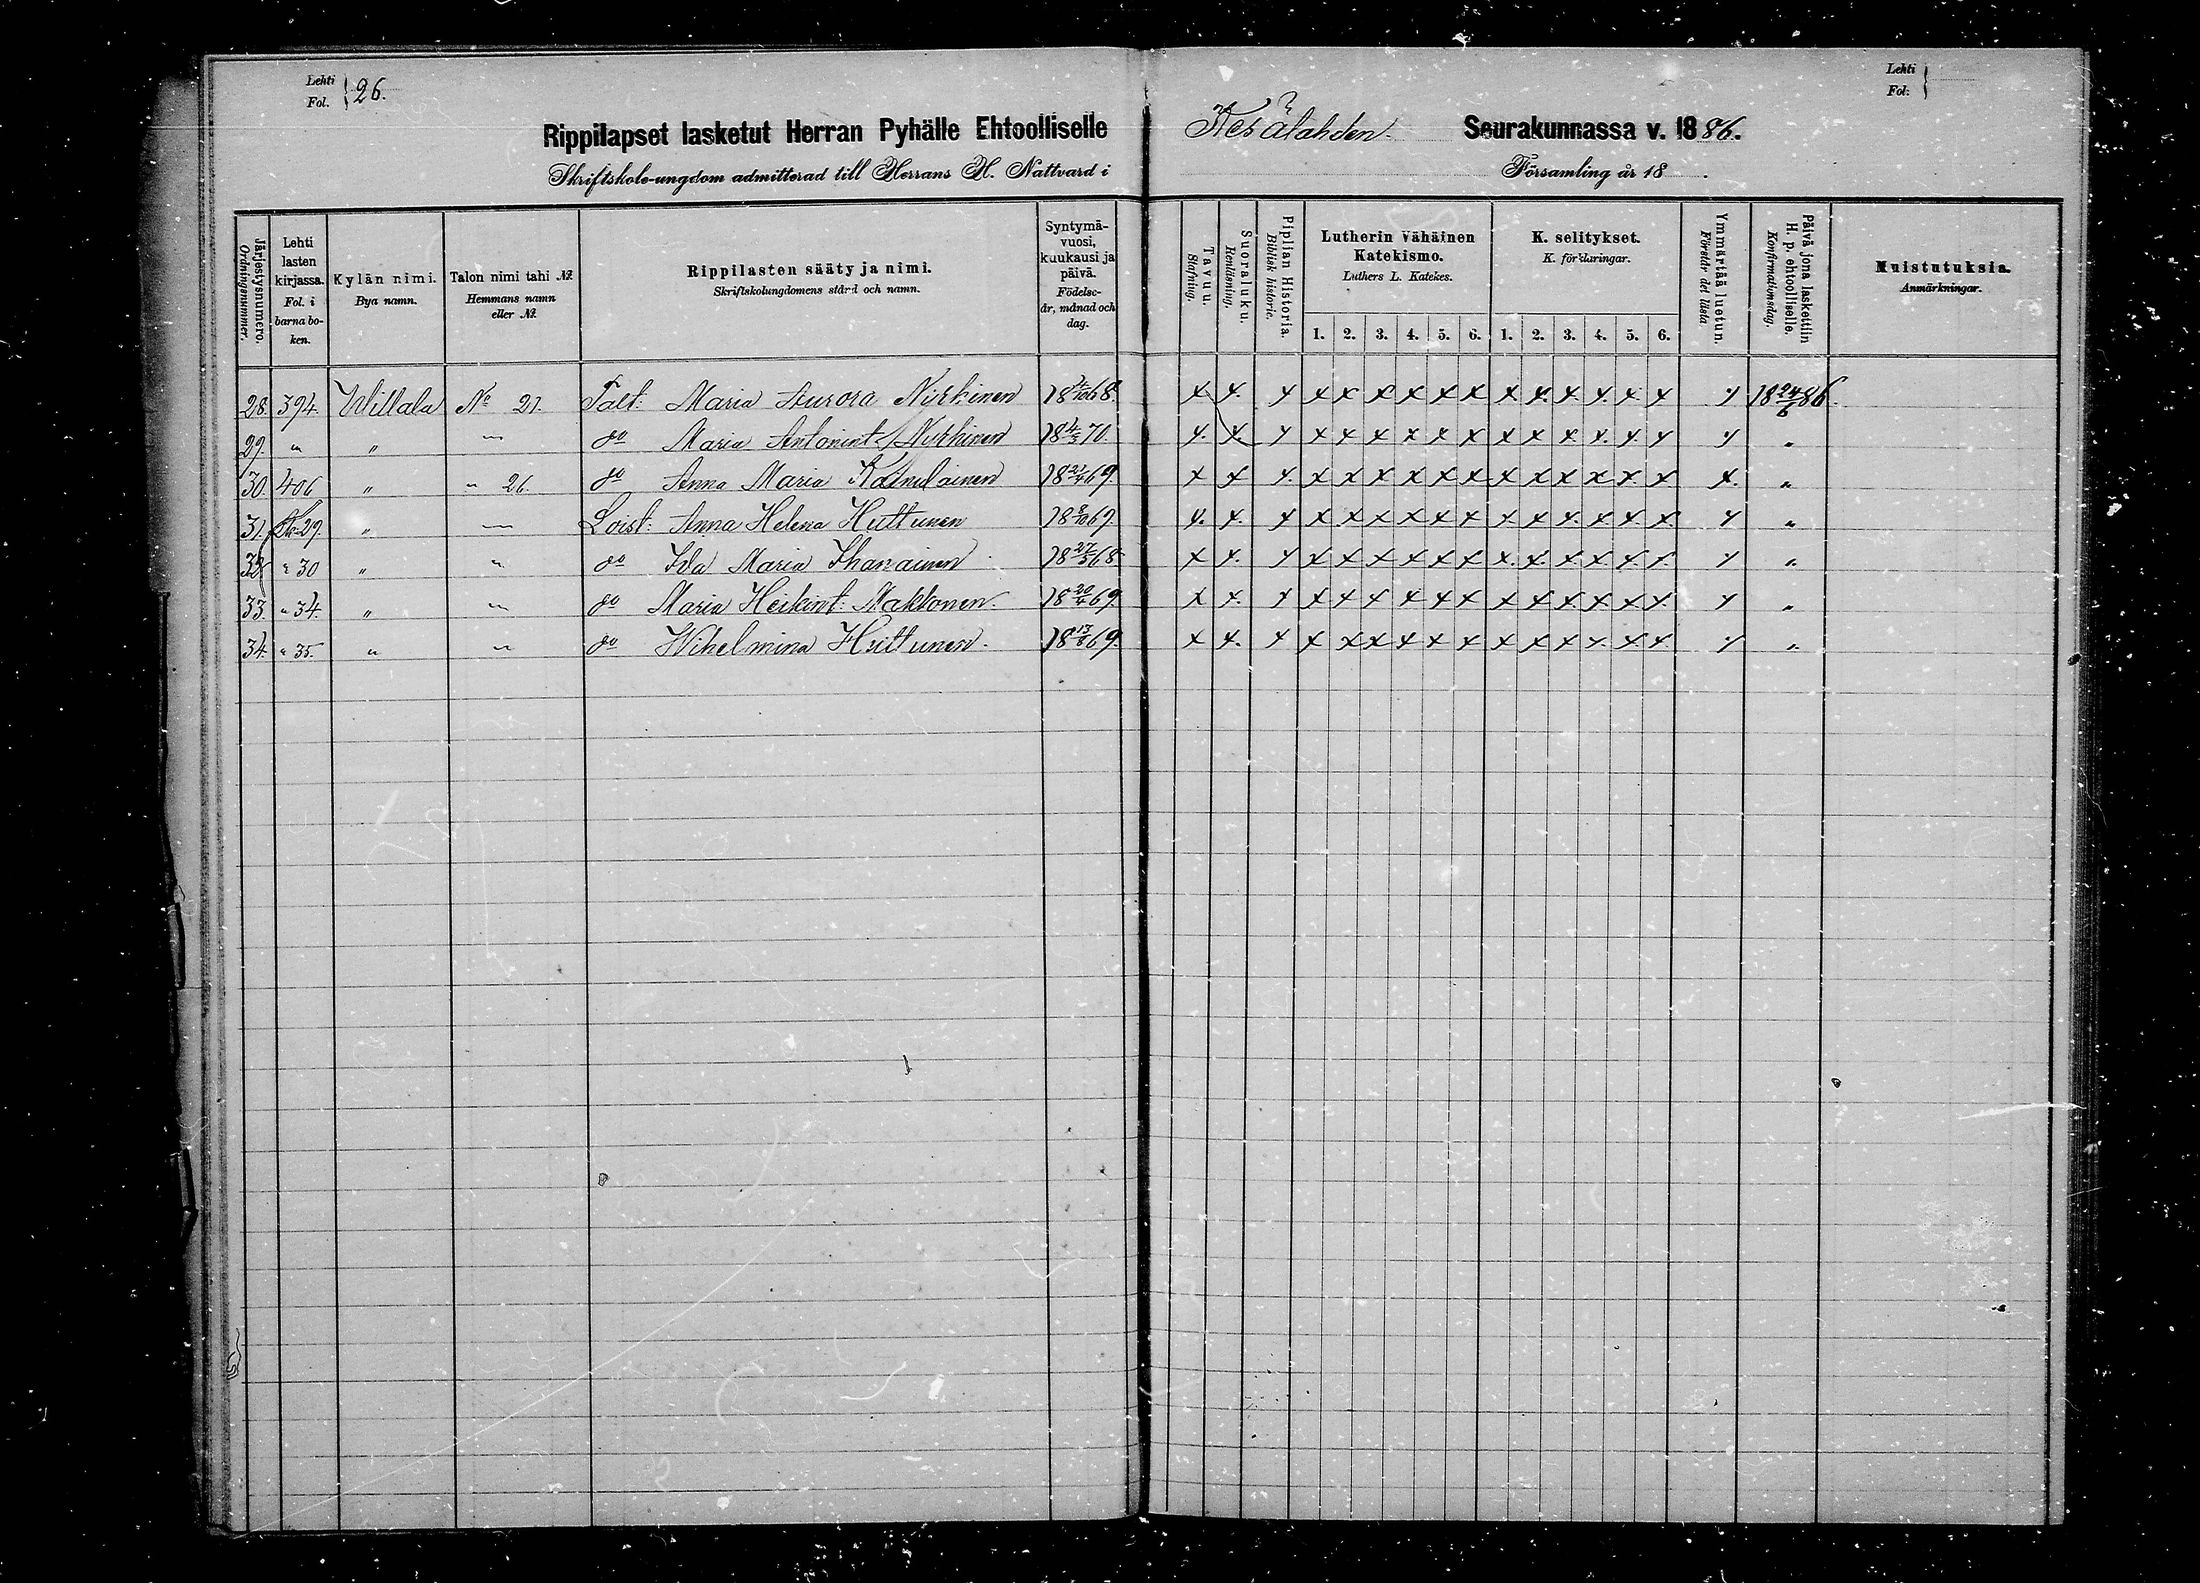 Lehti
Fol. 26.
Rippilapset lasketut Herran Pyhälle Ehtoolliselle
Skriftskole-ungdom admitterad till Herrans H. Nattvard i
Lehti
Fol:
Kesälahden. Seurakunnassa v. 1886.
Församling år 18 .
Järjestysnumero. Ordningsnummer.
Lehti lasten kirjassa. Fol. i barnaboken.
Kylän nimi. Bya namn.
Talon nimi tahi №. Hemmans namn eller №.
Rippilasten sääty ja nimi. Skriftskolungdomens stånd och namn.
Syntymävuosi, kuukausi ja päivä. Födelseår, månad och dag.
Tavuu. Stafning.
Suoraluku. Renläsning.
Piplian Historia. Biblisk historie.
Lutherin Vähäinen Katekismo. Luthers L. Katekes.
1. 2. 3. 4. 5. 6.
K. selitykset. K. förklaringar.
1. 2. 3. 4. 5. 6.
Ymmärtää luetun. Förstår det lästa
Päivä jona laskettiin H. p. ehtoolliselle. Konfirmationsdag.
Muistutuksia. Anmärkningar.
28. 394. Willala No 21. Talt: Maria Aurora Nyrhinen 18 /10 68. x x. x x x x x x x x x. x. x. x. x x 18 24/6 86.
29. " " " do Maria Antonint: Nyrhinen 18 70. x. x. x x x x x x x x x x x. x. x x "
30. 406 " " 26. do Anna Maria Kainulainen 18 21/4 69. x x x. x x x x x x x x x x x x x. "
31. 29. " " Loist: Anna Helena Huttunen 18 8/10 69. x. x. x x x x x x x x x x. x x. x. x "
32. " 30 " " do Ida Maria Ihanainen 18 27/3 68 x x. x x x x x x x x. x. x. x. x. x. x "
33. " 34. " " do Maria Heikint: Makkonen. 18 20/4 69. x x. x x x x x x x x x x. x. x. x. x "
34. " 35. " " do Wihelmina Huttunen. 18 13/8 69. x x. x x x x x x x x x x x. x. x. x "